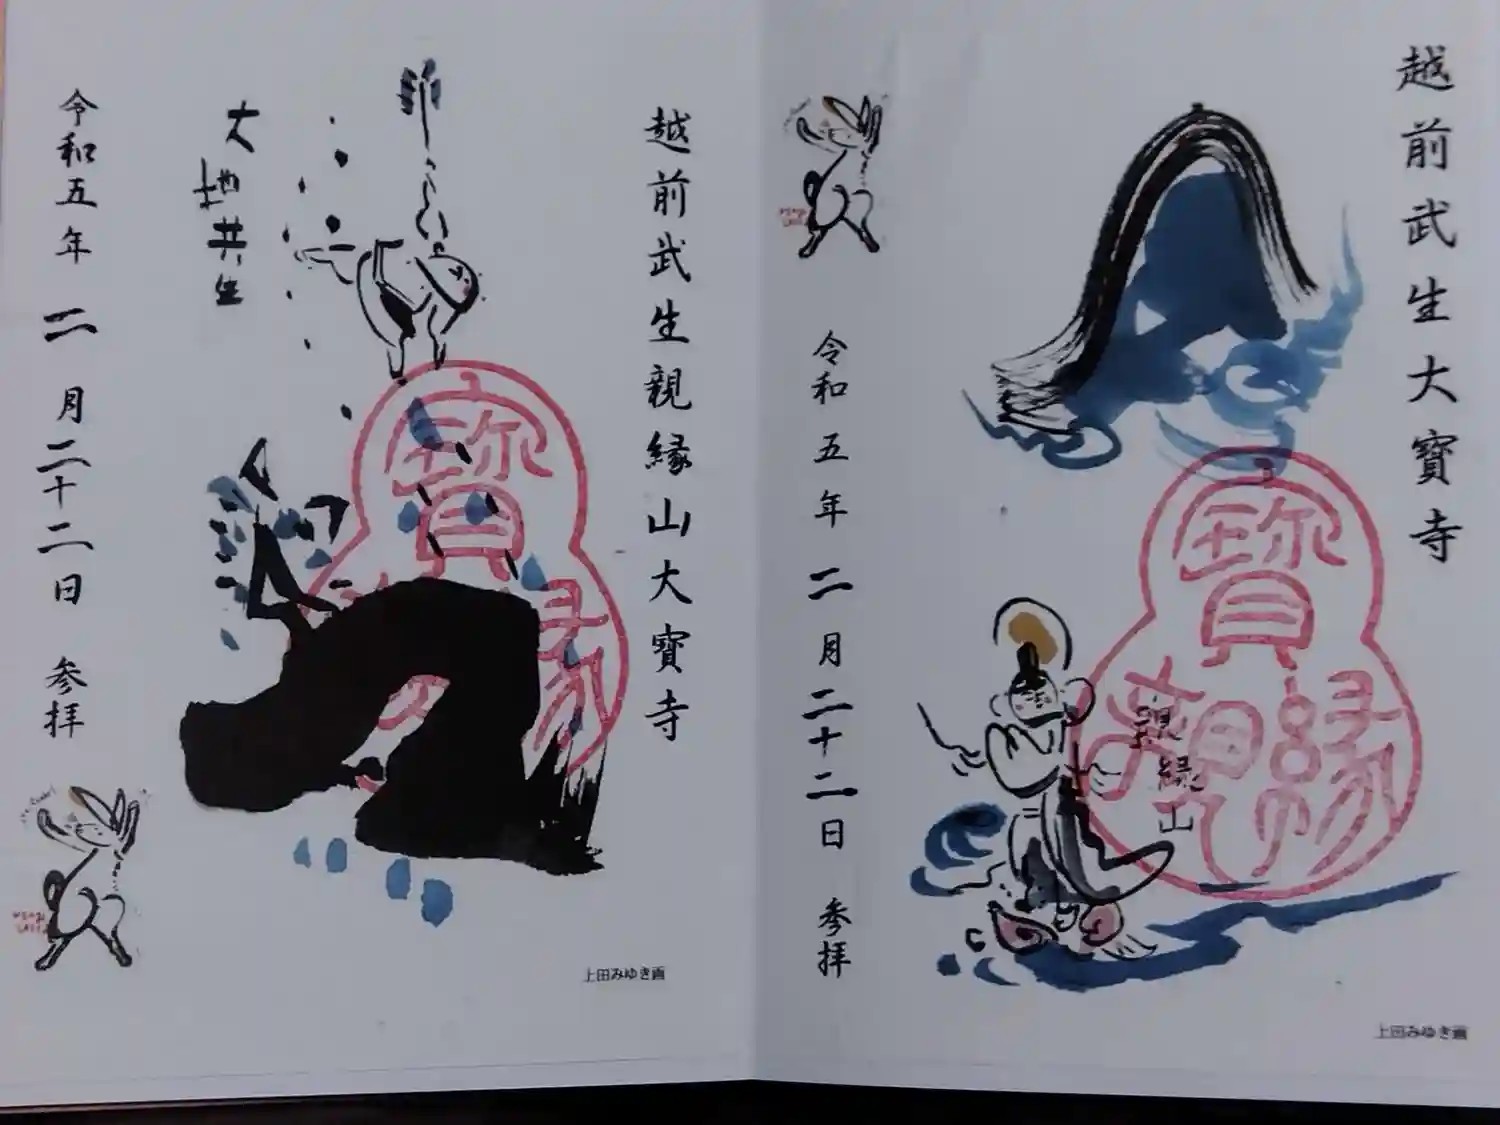 越前武生大寳寺
令和五年二月二十二日 参拝
寳
親縁
親縁山
上田みゆき画
越前武生親縁山大寳寺
大地共生
寳
縁
令和五年二月二十二日 参拝
上田みゆき画